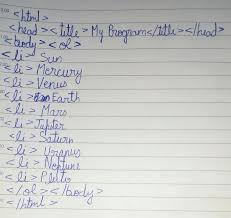 <html>
<head><title>My Program</title></head>
<body><ol>
<li> Sun
<li> Mercury
<li> Venus
<li> Earth
<li> Mars
<li> Jupiter
<li> Saturn
<li> Uranus
<li> Neptune
<li> Pluto
</ol></body>
</html>